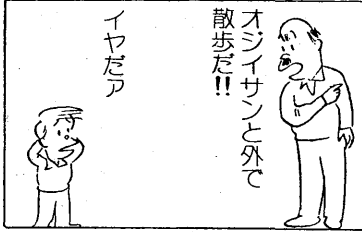 オジイサンと外で
散歩だ!!
イヤだァ